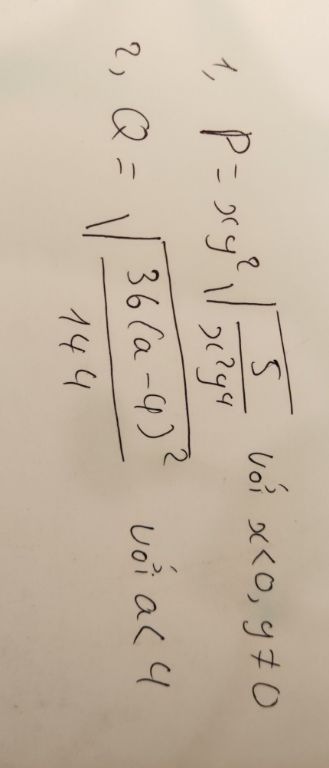 1, P = xy²√(5/(x²y⁴)) với x<0, y≠0
2, Q = √(36(a-4)²/144) với a<4